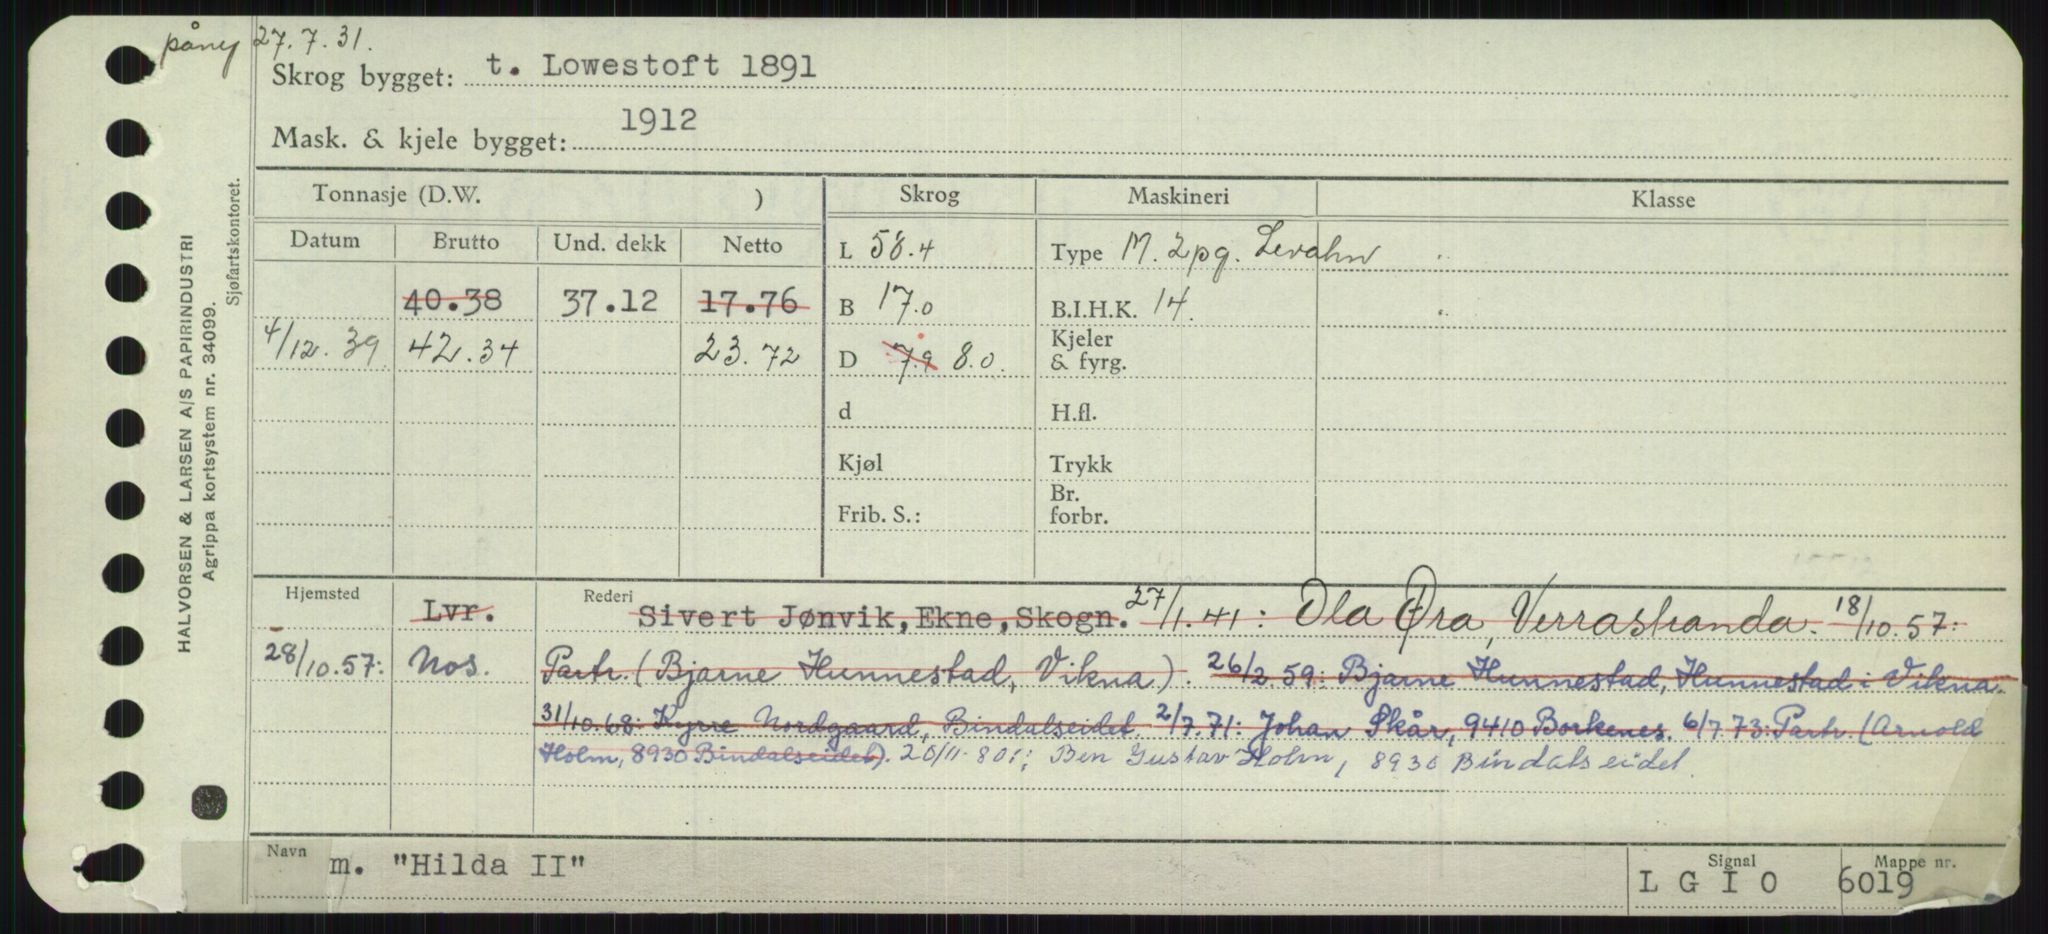 påny 27.7.31.
Skrog bygget: t. Lowestoft 1891
Mask. & kjele bygget: 1912
Tonnasje (D.W. ) Skrog Maskineri Klasse
Datum Brutto Und. dekk Netto L 58.4 Type M. 2pg. Levahn
40.38 37.12 17.76 B 17.0 B.I.H.K. 14.
4/12.39. 42.34 23.72 D 7.9 8.0. Kjeler & fyrg.
d H.fl.
Kjøl Trykk
Frib. S.: Br. forbr.
Hjemsted Lvr. Rederi Sivert Jønvik, Ekne, Skogn. 27/1.41: Ola Øra, Verrastranda. 18/10.57:
28/10.57: Nos. Partr. (Bjarne Hunnestad, Vikna). 26/2 59: Bjarne Hunnestad, Hunnestad i Vikna.
31/10.68: Kyrre Nordgaard, Bindalseidet. 2/7.71: Johan Skår, 9410 Borkenes. 6/7.73: Partr. (Arnold
Holm, 8930 Bindalseidet). 20/11-80: Ben Gustav Holm, 8930 Bindalseidet.
Navn m. "Hilda II" Signal L G I O Mappe nr. 6019
HALVORSEN & LARSEN A/S PAPIRINDUSTRI
Agrippa kortsystem nr. 34099.
Sjøfartskontoret.